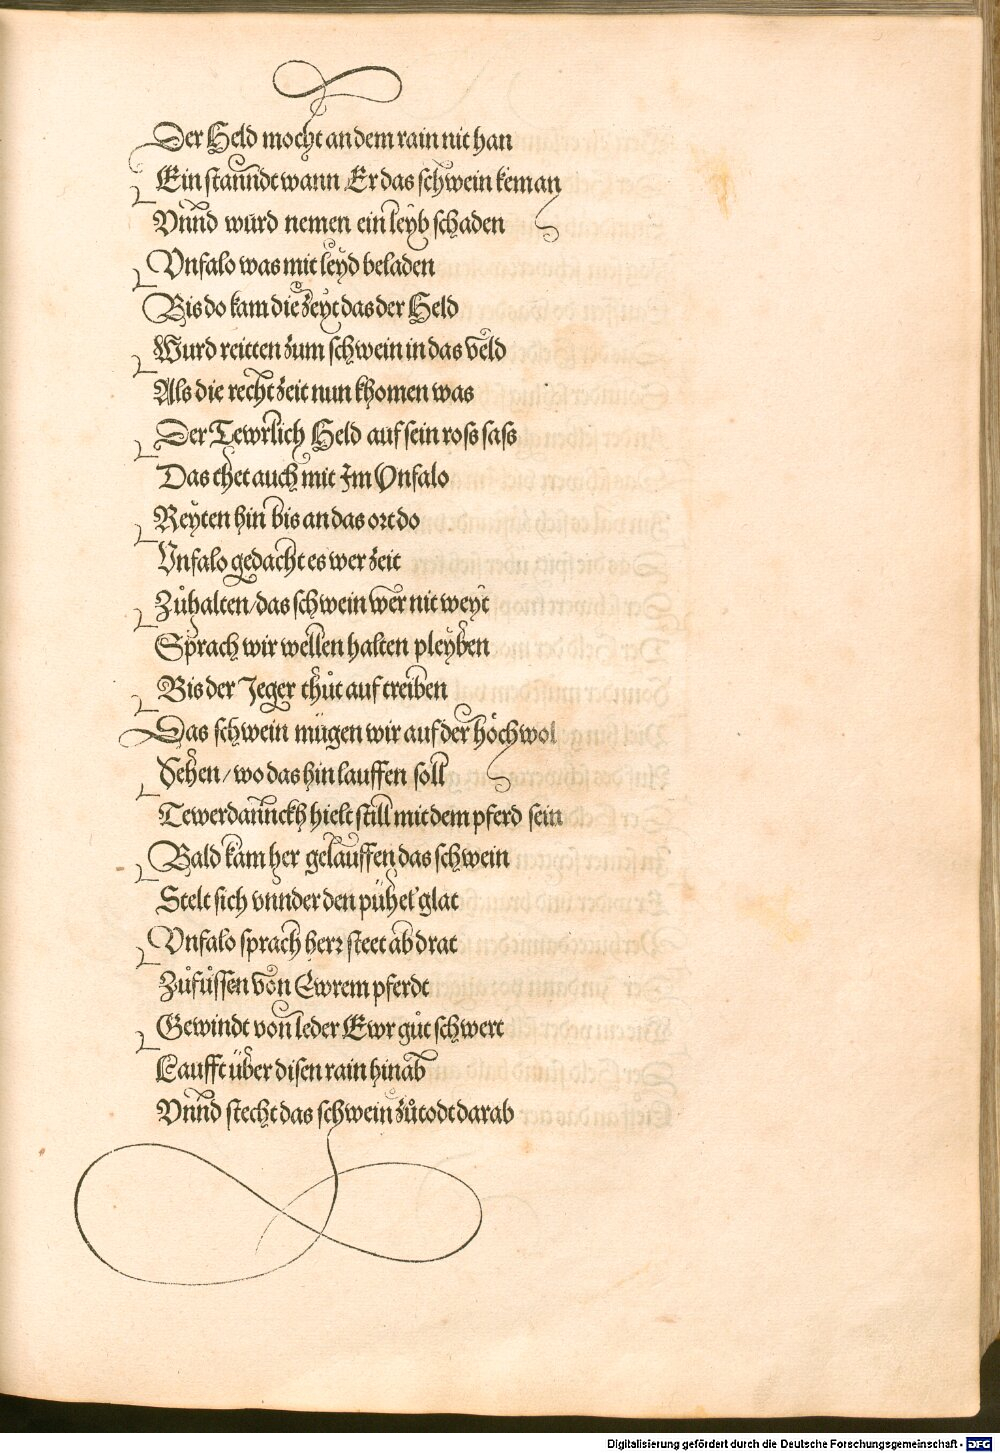 Der Held mocht an dem rain nit han
Ein stanndt wann Er das schwein kem an
Vnnd wurd nemen ein leyb schaden
Vnfalo was mit leyd beladen
Bis do kam die zeyt das der Held
Wurd reitten zum schwein in das veld
Als die recht zeit nun khomen was
Der Tewrlich Held auf sein ross sass
Das thet auch mit Im Vnfalo
Reyten hin bis an das ort do
Vnfalo gedacht es wer zeit
Zůhalten/das schwein wer nit weyt
Sprach wir wellen halten pleyben
Bis der Jeger thůt auf treiben
Das schwein mügen wir auf der höch wol
Sehen/wo das hin lauffen soll
Tewerdannckh hielt still mit dem pferd sein
Bald kam her gelauffen das schwein
Stelt sich vnnder den pühel glat
Vnfalo sprach herr steet ab drat
Zůfůssen von Ewrem pferdt
Gewindt von leder Ewr gůt schwert
Laufft über disen rain hinab
Vnnd stecht das schwein zůtodt darab
Digitalisierung gefördert durch die Deutsche Forschungsgemeinschaft - DFG